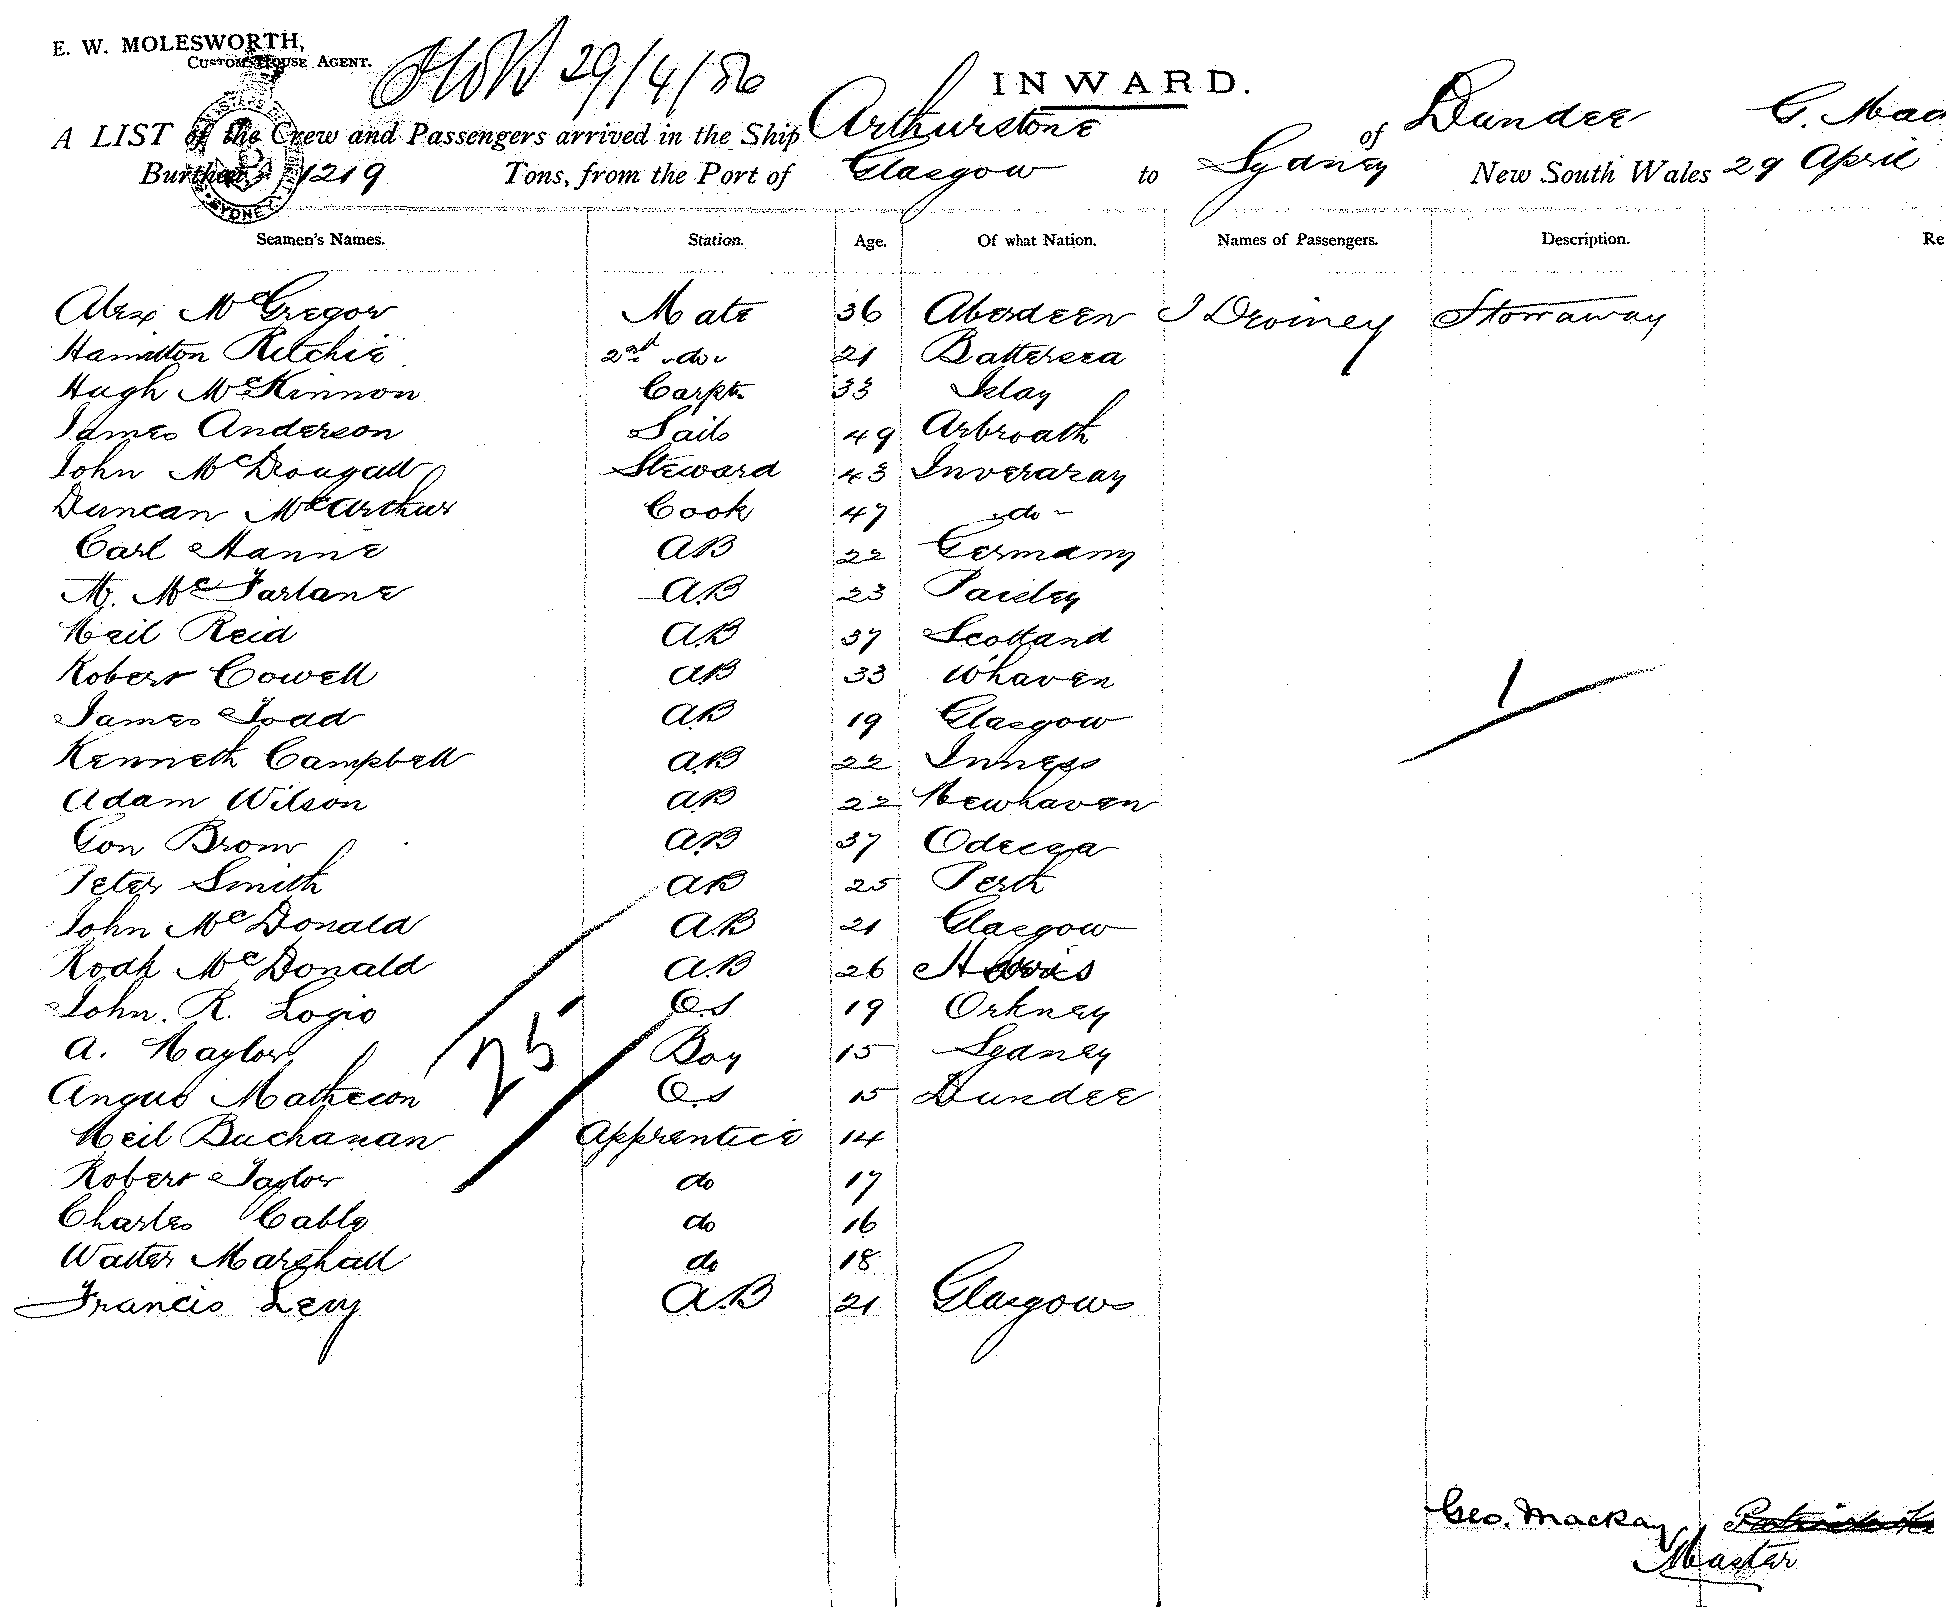 E. W. MOLESWORTH,
CUSTOMS HOUSE AGENT.
29/4/86
INWARD.
A LIST of the Crew and Passengers arrived in the Ship Arthurstone of Dundee G. Mac
Burthen 1219 Tons, from the Port of Glasgow to Sydney New South Wales 29 April
Seamen's Names. Station. Age. Of what Nation. Names of Passengers. Description. Re
Alex McGregor Mate 36 Aberdeen J Droiney Stowaway
Hamilton Ritchie 2nd do 21 Battersea
Hugh McKinnon Carptr 33 Islay
James Anderson Sails 49 Arbroath
John McDougall Steward 43 Inveraray
Duncan McArthur Cook 47 do
Carl Hanne AB 22 Germany
M. McFarlane AB 23 Paisley
Neil Reid AB 37 Scotland
Robert Cowell AB 33 W'haven
James Todd AB 19 Glasgow
Kenneth Campbell AB 22 Inness
Adam Wilson AB 22 Newhaven
Con Brom AB 37 Odessa
Peter Smith AB 25 Perth
John McDonald AB 21 Glasgow
Rodk McDonald AB 26 Harris
John. R. Logio O.S 19 Orkney
A. Naylor Boy 15 Sydney
Angus Matheson O.S 15 Dundee
Neil Buchanan Apprentice 14
Robert Taylor do 17
Charles Cable do 16
Walter Marshall do 18
Francis Levy A.B 21 Glasgow
25
1
Geo. Mackay
Master